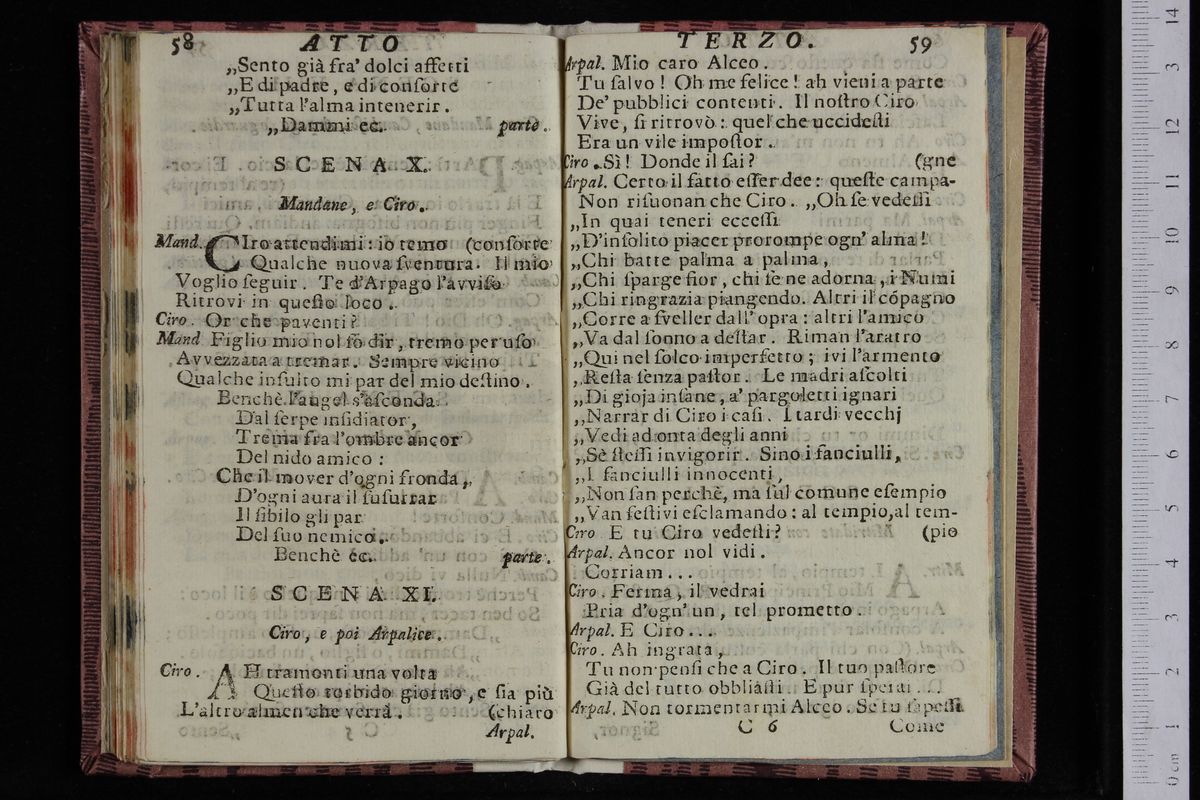 58 ATTO
„Sento già fra' dolci affetti
„E di padre, e di conſorte
„Tutta l'alma intenerir.
„Dammi ec. parte.
SCENA X.
Mandane, e Ciro.
Mand. CIro attendimi: io temo (conſorte
Qualche nuova ſventura. Il mio
Voglio ſeguir. Te d'Arpago l'avviſo
Ritrovi in queſto loco.
Ciro. Or che paventi?
Mand Figlio mio nol ſo dir, tremo per uſo
Avvezzata a tremar. Sempre vicino
Qualche inſulto mi par del mio deſtino.
Benchè l'augel s'aſconda
Dal ſerpe inſidiator,
Trema fra l'ombre ancor
Del nido amico:
Che il mover d'ogni fronda,
D'ogni aura il ſuſurrar
Il ſibilo gli par
Del ſuo nemico.
Benchè ec. parte.
SCENA XI.
Ciro, e poi Arpalice.
Ciro. AH tramonti una volta
Queſto torbido giorno, e ſia più
L'altro almen che verrà. (chiaro
Arpal.
TERZO. 59
Arpal. Mio caro Alceo.
Tu ſalvo! Oh me felice! ah vieni a parte
De' pubblici contenti. Il noſtro Ciro
Vive, ſi ritrovò: quel che uccideſti
Era un vile impoſtor.
Ciro. Sì! Donde il ſai? (gne
Arpal. Certo il fatto eſſer dee: queſte campa-
Non riſuonan che Ciro. „Oh ſe vedeſſi
„In quai teneri ecceſſi
„D'inſolito piacer prorompe ogn' alma!
„Chi batte palma a palma,
„Chi ſparge fior, chi ſe ne adorna, i Numi
„Chi ringrazia piangendo. Altri il cõpagno
„Corre a ſveller dall' opra: altri l'amico
„Va dal ſonno a deſtar. Riman l'aratro
„Qui nel ſolco imperfetto; ivi l'armento
„Reſta ſenza paſtor. Le madri aſcolti
„Di gioja inſane, a' pargoletti ignari
„Narrar di Ciro i caſi. I tardi vecchj
„Vedi ad onta degli anni
„Sè ſteſſi invigorir. Sino i fanciulli,
„I fanciulli innocenti,
„Non ſan perchè, ma ſul comune eſempio
„Van feſtivi eſclamando: al tempio, al tem-
Ciro E tu Ciro vedeſti? (pio
Arpal. Ancor nol vidi.
Corriam...
Ciro. Ferma, il vedrai
Pria d'ogn' un, tel prometto.
Arpal. E Ciro...
Ciro. Ah ingrata,
Tu non penſi che a Ciro. Il tuo paſtore
Già del tutto obbliaſti. E pur ſperai...
Arpal. Non tormentarmi Alceo. Se tu ſapeſſi
C 6 Come